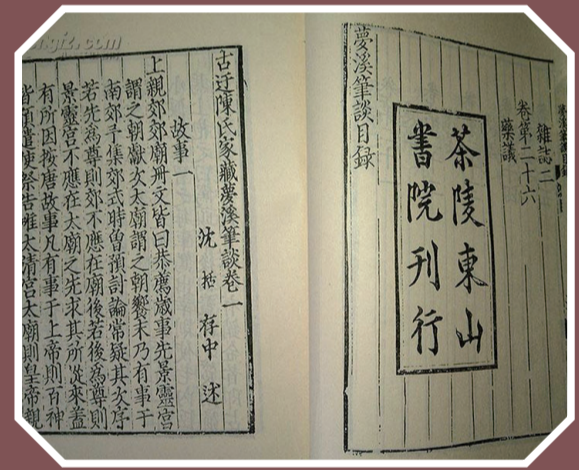 雜誌二
卷第二十六
藥議
茶陵東山
書院刊行
夢溪筆談目録
古迂陳氏家藏夢溪筆談卷一
沈括存中述
故事一
上親郊郊廟冊文皆曰恭薦歲事先景靈宮
謂之朝獻次太廟謂之朝饗末乃有事于
南郊予集郊式時曽預討論常疑其次序
若先為尊則郊不應在廟後若後為尊則
景靈宮不應在太廟之先求其所從來盖
有所因按唐故事凡有事于上帝則百神
皆預遣使祭告唯太清宫太廟則皇帝親